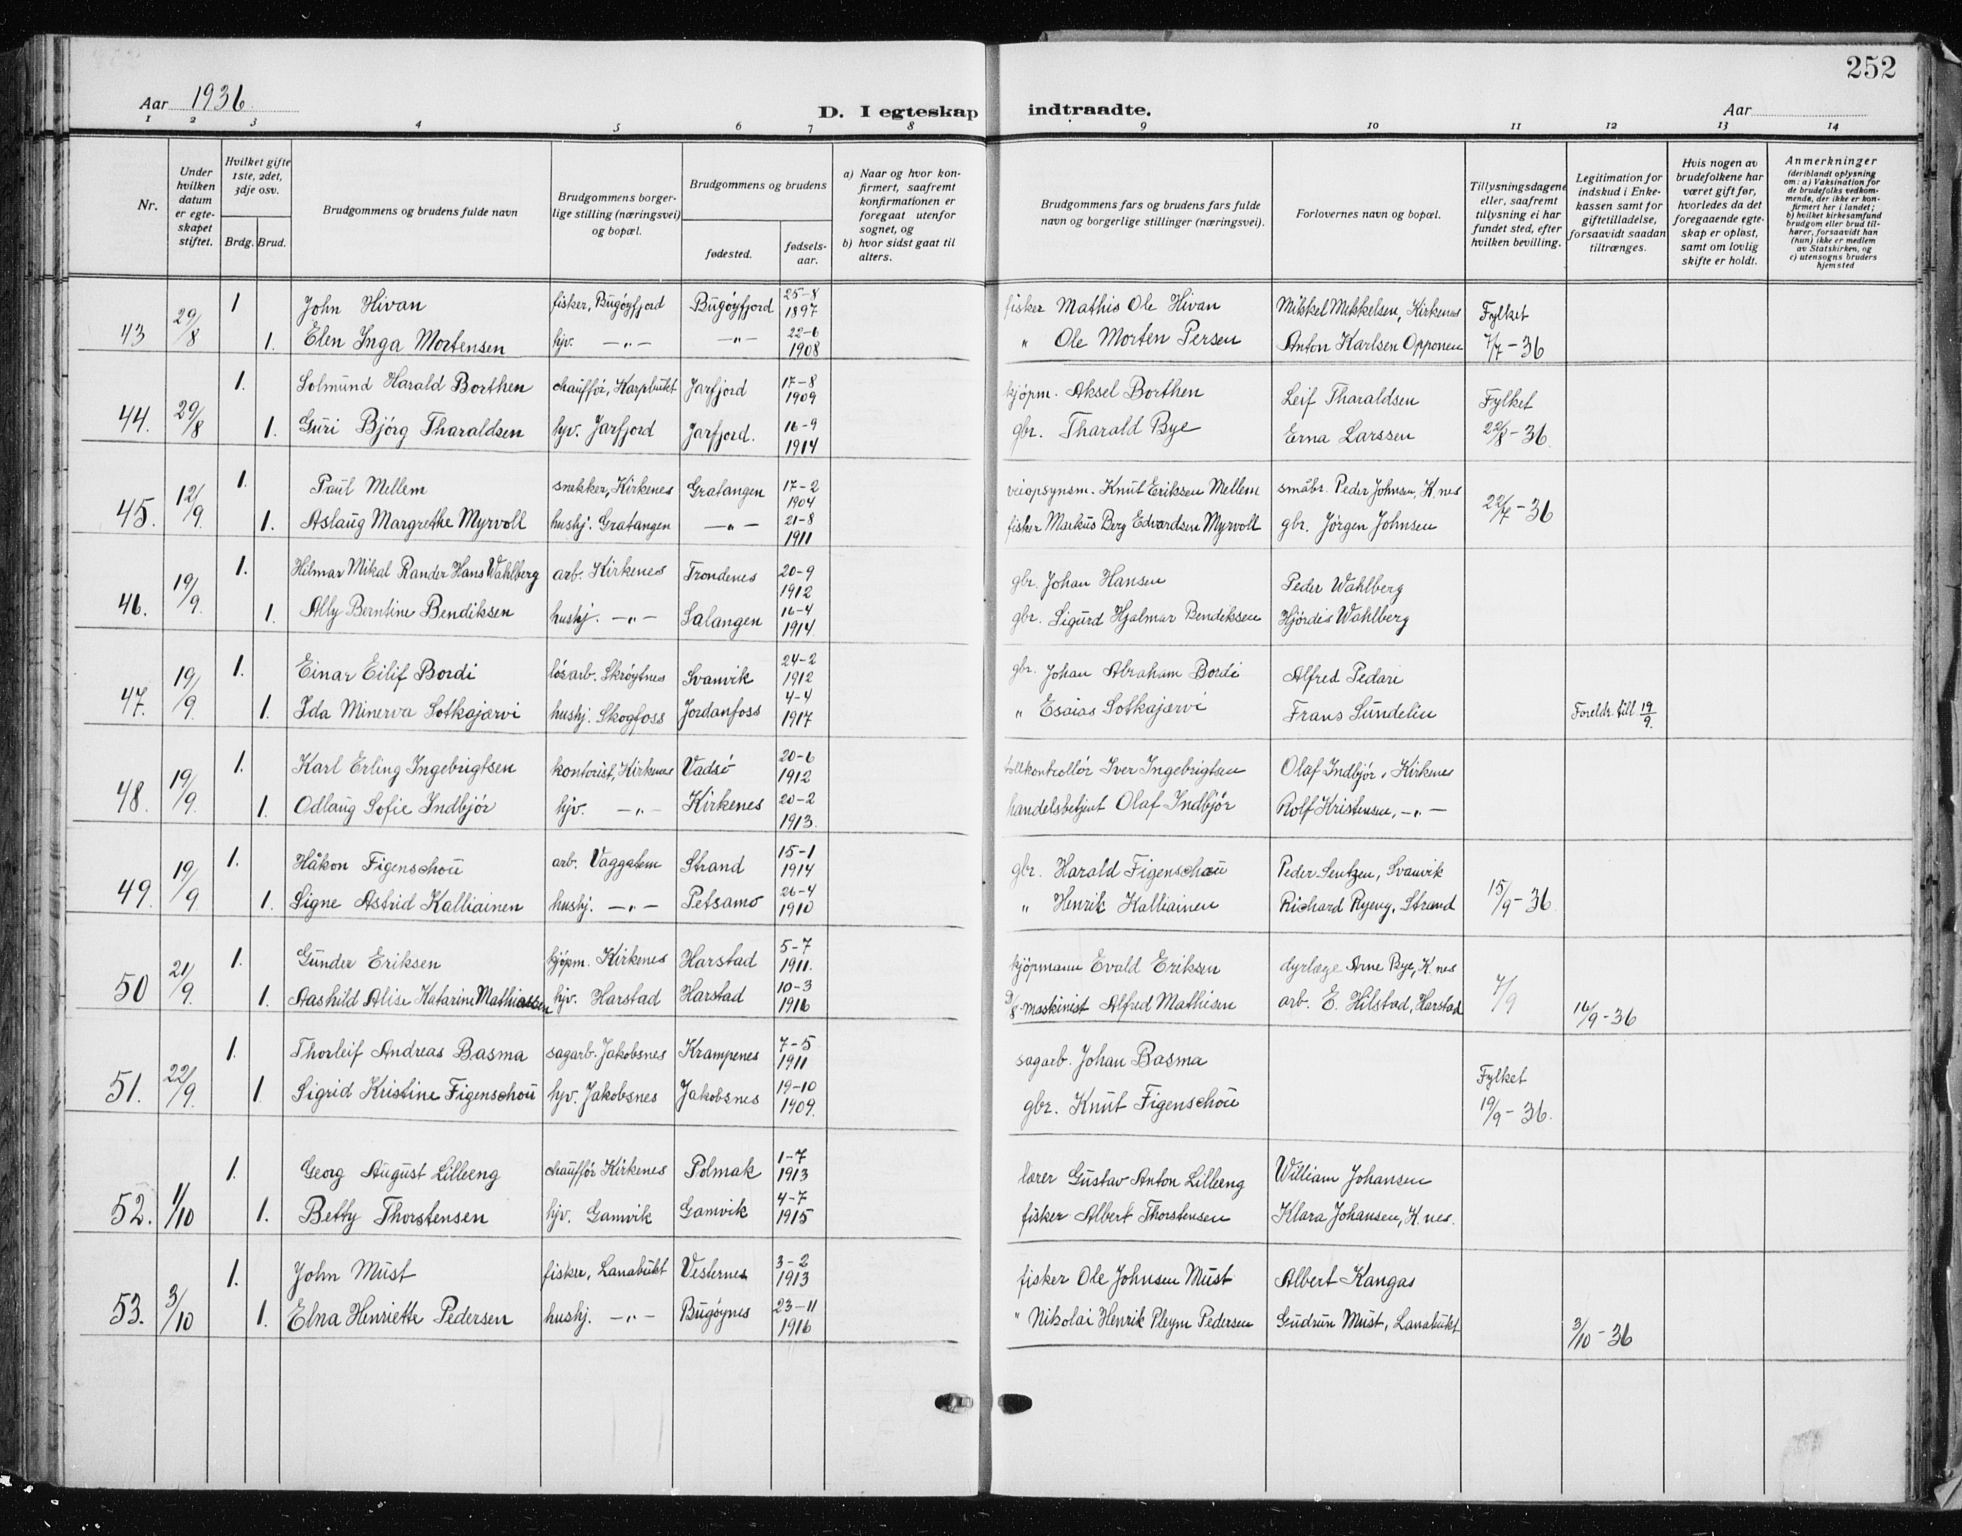 252
Aar 1936.
D. I egteskap indtraadte.
Aar
1 2 3 4 5 6 7 8 9 10 11 12 13 14
Nr.
Under hvilken datum er egteskapet stiftet.
Hvilket gifte 1ste, 2det, 3dje osv.
Brdg. Brud.
Brudgommens og brudens fulde navn
Brudgommens borgerlige stilling (næringsvei) og bopæl.
Brudgommens og brudens
fødested.
fødselsaar.
a) Naar og hvor konfirmert, saafremt konfirmationen er foregaat utenfor sognet, og
b) hvor sidst gaat til alters.
Brudgommens fars og brudens fars fulde navn og borgerlige stillinger (næringsvei).
Forlovernes navn og bopæl.
Tillysningsdagene eller, saafremt tillysning ei har fundet sted, efter hvilken bevilling.
Legitimation for indskud i Enkekassen samt for giftetilladelse, forsaavidt saadan tiltrænges.
Hvis nogen av brudefolkene har været gift før, hvorledes da det foregaaende egteskap er opløst, samt om lovlig skifte er holdt.
Anmerkninger (deriblandt oplysning om: a) Vaksination for de brudefolks vedkommende, der ikke er konfirmert her i landet; b) hvilket kirkesamfund brudgom eller brud tilhører, forsaavidt han (hun) ikke er medlem av Statskirken, og c) utensogns bruders hjemsted
43 29/8 1 John Hivan fisker, Bugöyfjord Bugöyfjord 25-8 1897 fisker Mathis Ole Hivan Mikkel Mikkelsen, Kirkenes Fylket
1. Elen Inga Mortensen hjv. -„- -„- 22-6 1908 „ Ole Morten Persen Anton Karlsen Opponen 7/7-36
44. 29/8 1. Solmund Harald Borthen chauffør, Karpbukt Jarfjord 17-8 1909 kjøpm. Aksel Borthen Leif Tharaldsen Fylket
1. Guri Bjórg Tharaldsen hjv. Jarfjord Jarfjord. 16-9 1914 gbr. Tharald Bye Erna Larssen 22/8-36.
45. 12/9. 1. Paul Mellem snekker, Kirkenes Gratangen 17-2 1904 veiopsynsm. Knut Eriksen Mellem småbr. Peder Johnsen, K.nes
1. Aslaug Margrethe Myrvoll hushj. Gratangen -„- 21-8 1911 fisker Markus Berg Edvardsen Myrvoll gbr. Jørgen Johnsen 22/7-36
46. 19/9. 1. Hilmar Mikal Rander Hans Wahlberg arb. Kirkenes Trondenes 20-9 1912 gbr. Johan Hansen Peder Wahlberg
1. Ally Berntine Bendiksen hushj. -„- Salangen 16-4 1914. gbr. Sigurd Hjalmar Bendiksen Hjördis Wahlberg
47. 19/9. 1. Einar Eilif Bordi lósarb. Skróytnes Svanvik 24-2 1912 gbr. Johan Abraham Bordi Alfred Pedari
1. Ida Minerva Sotkajærvi hushj. Skogfoss Jordanfoss 4-4 1917 „ Esaias Sotkajærvi Frans Sundelin Foreldr. till 19/9.
48. 19/9. 1. Karl Erling Ingebrigtsen kontorist, Kirkenes Vadsó 20-6 1912 tollkontrollør Iver Ingebrigtsen Olaf Indbjór, Kirkenes
1. Odlaug Sofie Indbjór hjv. -„- Kirkenes 20-2 1913. handelsbetjent Olaf Indbjór Rolf Kristensen, -„-
49. 19/9 1. Håkon Figenschou arb. Vaggatem Strand 15-1 1914 gbr. Harald Figenschou Peder Sentzen, Svanvik
1. Signe Astrid Kalliainen hushj. -„- Petsamo 26-4 1910 „ Henrik Kalliainen Richard Ryeng, Strand 15/9-36
50 21/9. 1. Gunder Eriksen kjøpm. Kirkenes Harstad 5-7 1911. kjöpmann Evald Eriksen dyrlæge Arne Bye, K.nes
1. Aashild Alise Katarine Mathiassen hjv. Harstad Harstad 10-3 1916 maskinist Alfred Mathisen arb. E. Hilstad, Harstad 7/9 16/9-36
51. 22/9. 1. Thorleif Andreas Basma sagarb. Jakobsnes Krampenes 7-5 1911 sagarb. Johan Basma Fylket
1. Sigrid Kristine Figenschou hjv. Jakobsnes Jakobsnes 19-10 1909. gbr. Knut Figenschou 19/9-36.
52. 1/10 1. Georg August Lilleeng chauffør Kirkenes Polmak 1-7 1913 lærer Gustav Anton Lilleeng William Johansen
1. Betty Thorstensen hjv. Gamvik Gamvik 4-7 1915 fisker Albert Thorstensen Klara Johansen, K.nes.
53. 3/10 1. John Must fisker, Lanabukt Vesternes 3-2 1913 fisker Ole Johnsen Must Albert Kangas
1. Elna Henriette Pedersen hushj. -„- Bugöynes 23-11 1916 „ Nikolai Henrik Pleym Pedersen Gudrun Must, Lanabukt 3/10-36